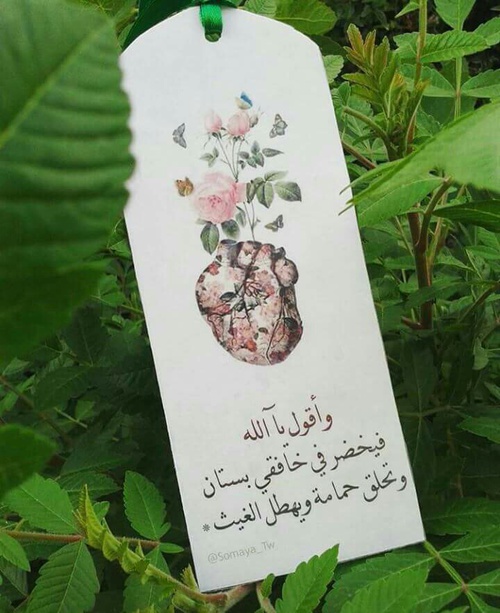 وأقول يا آلله
فيخضر في خافقي بستان
وتحلق حمامة ويهطل الغيث *
@Somaya_Tw